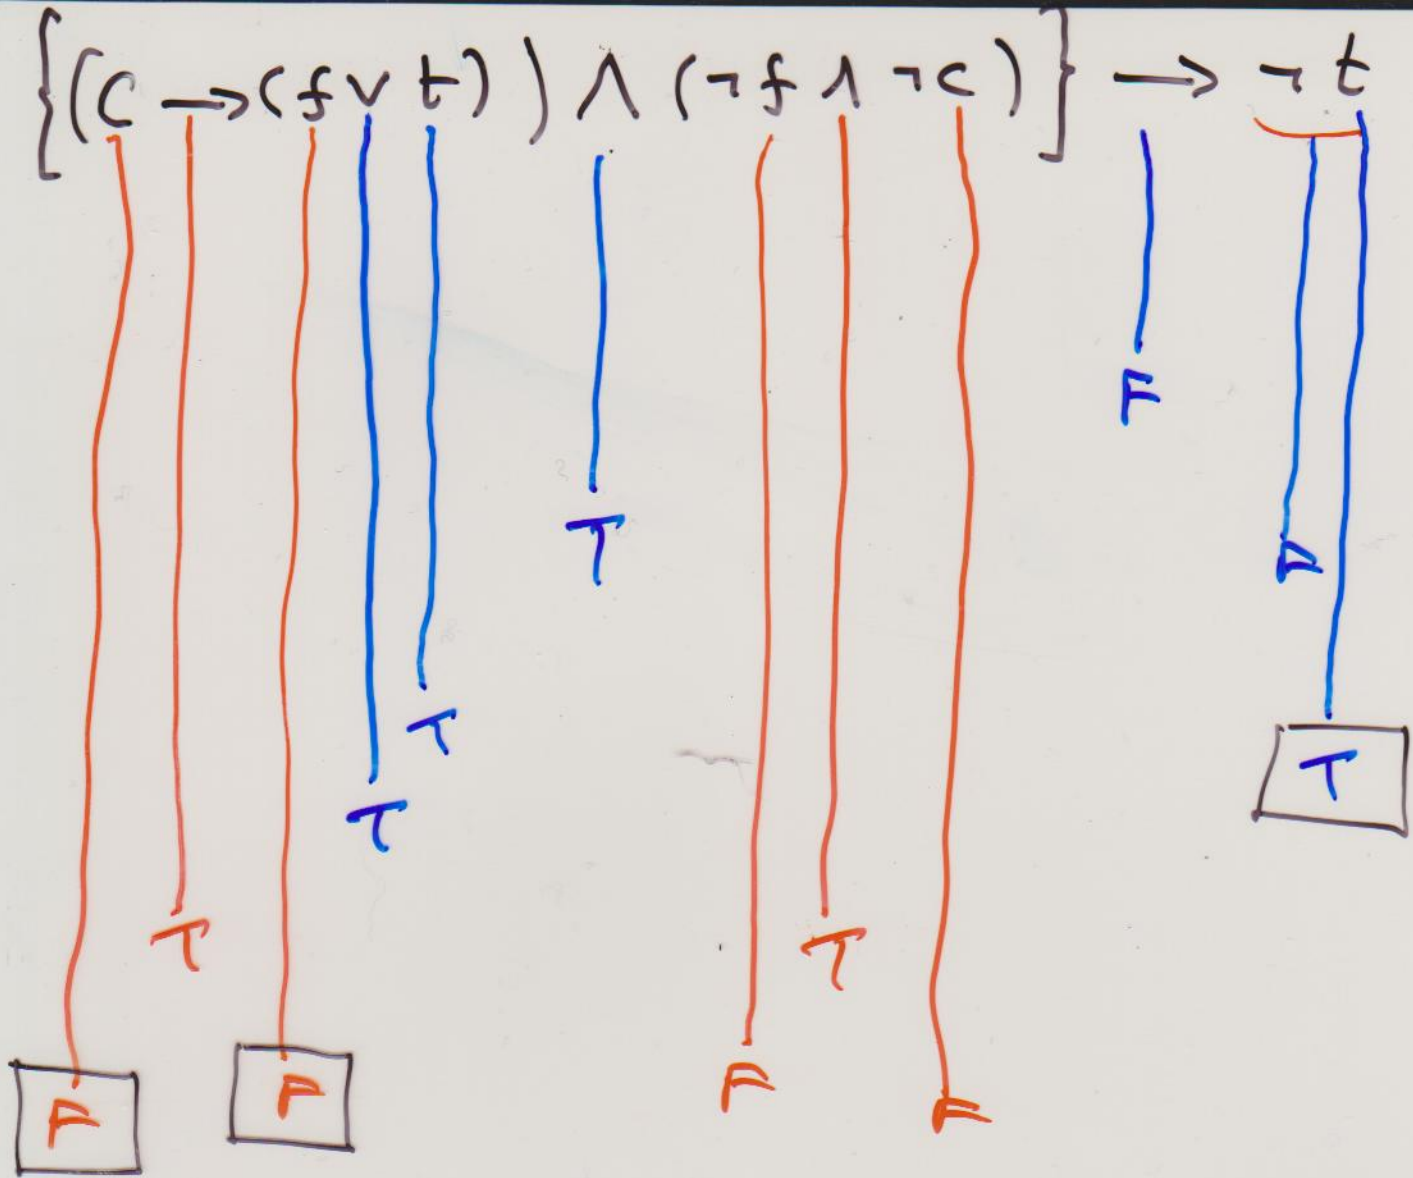 {(C → (f ∨ t)) ∧ (¬f ∧ ¬c)} → ¬t
F
T
F
T
T
T
T
F
T
F
F
F
F